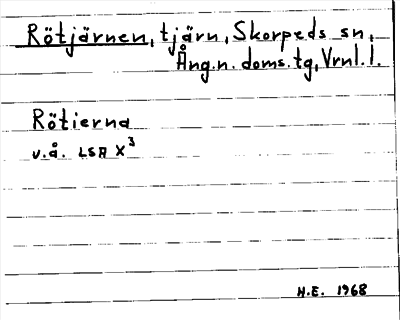 Rötjärnen, tjärn, Skorpeds sn,
Ång.n. doms.tg, Vrnl.l.
Rötierna
v.å. LSA X³
H.E. 1968